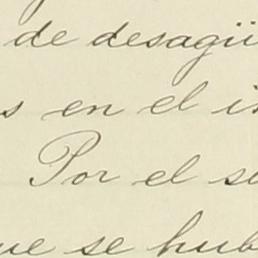 de desagü
s en el i
Por el s
ue se hub